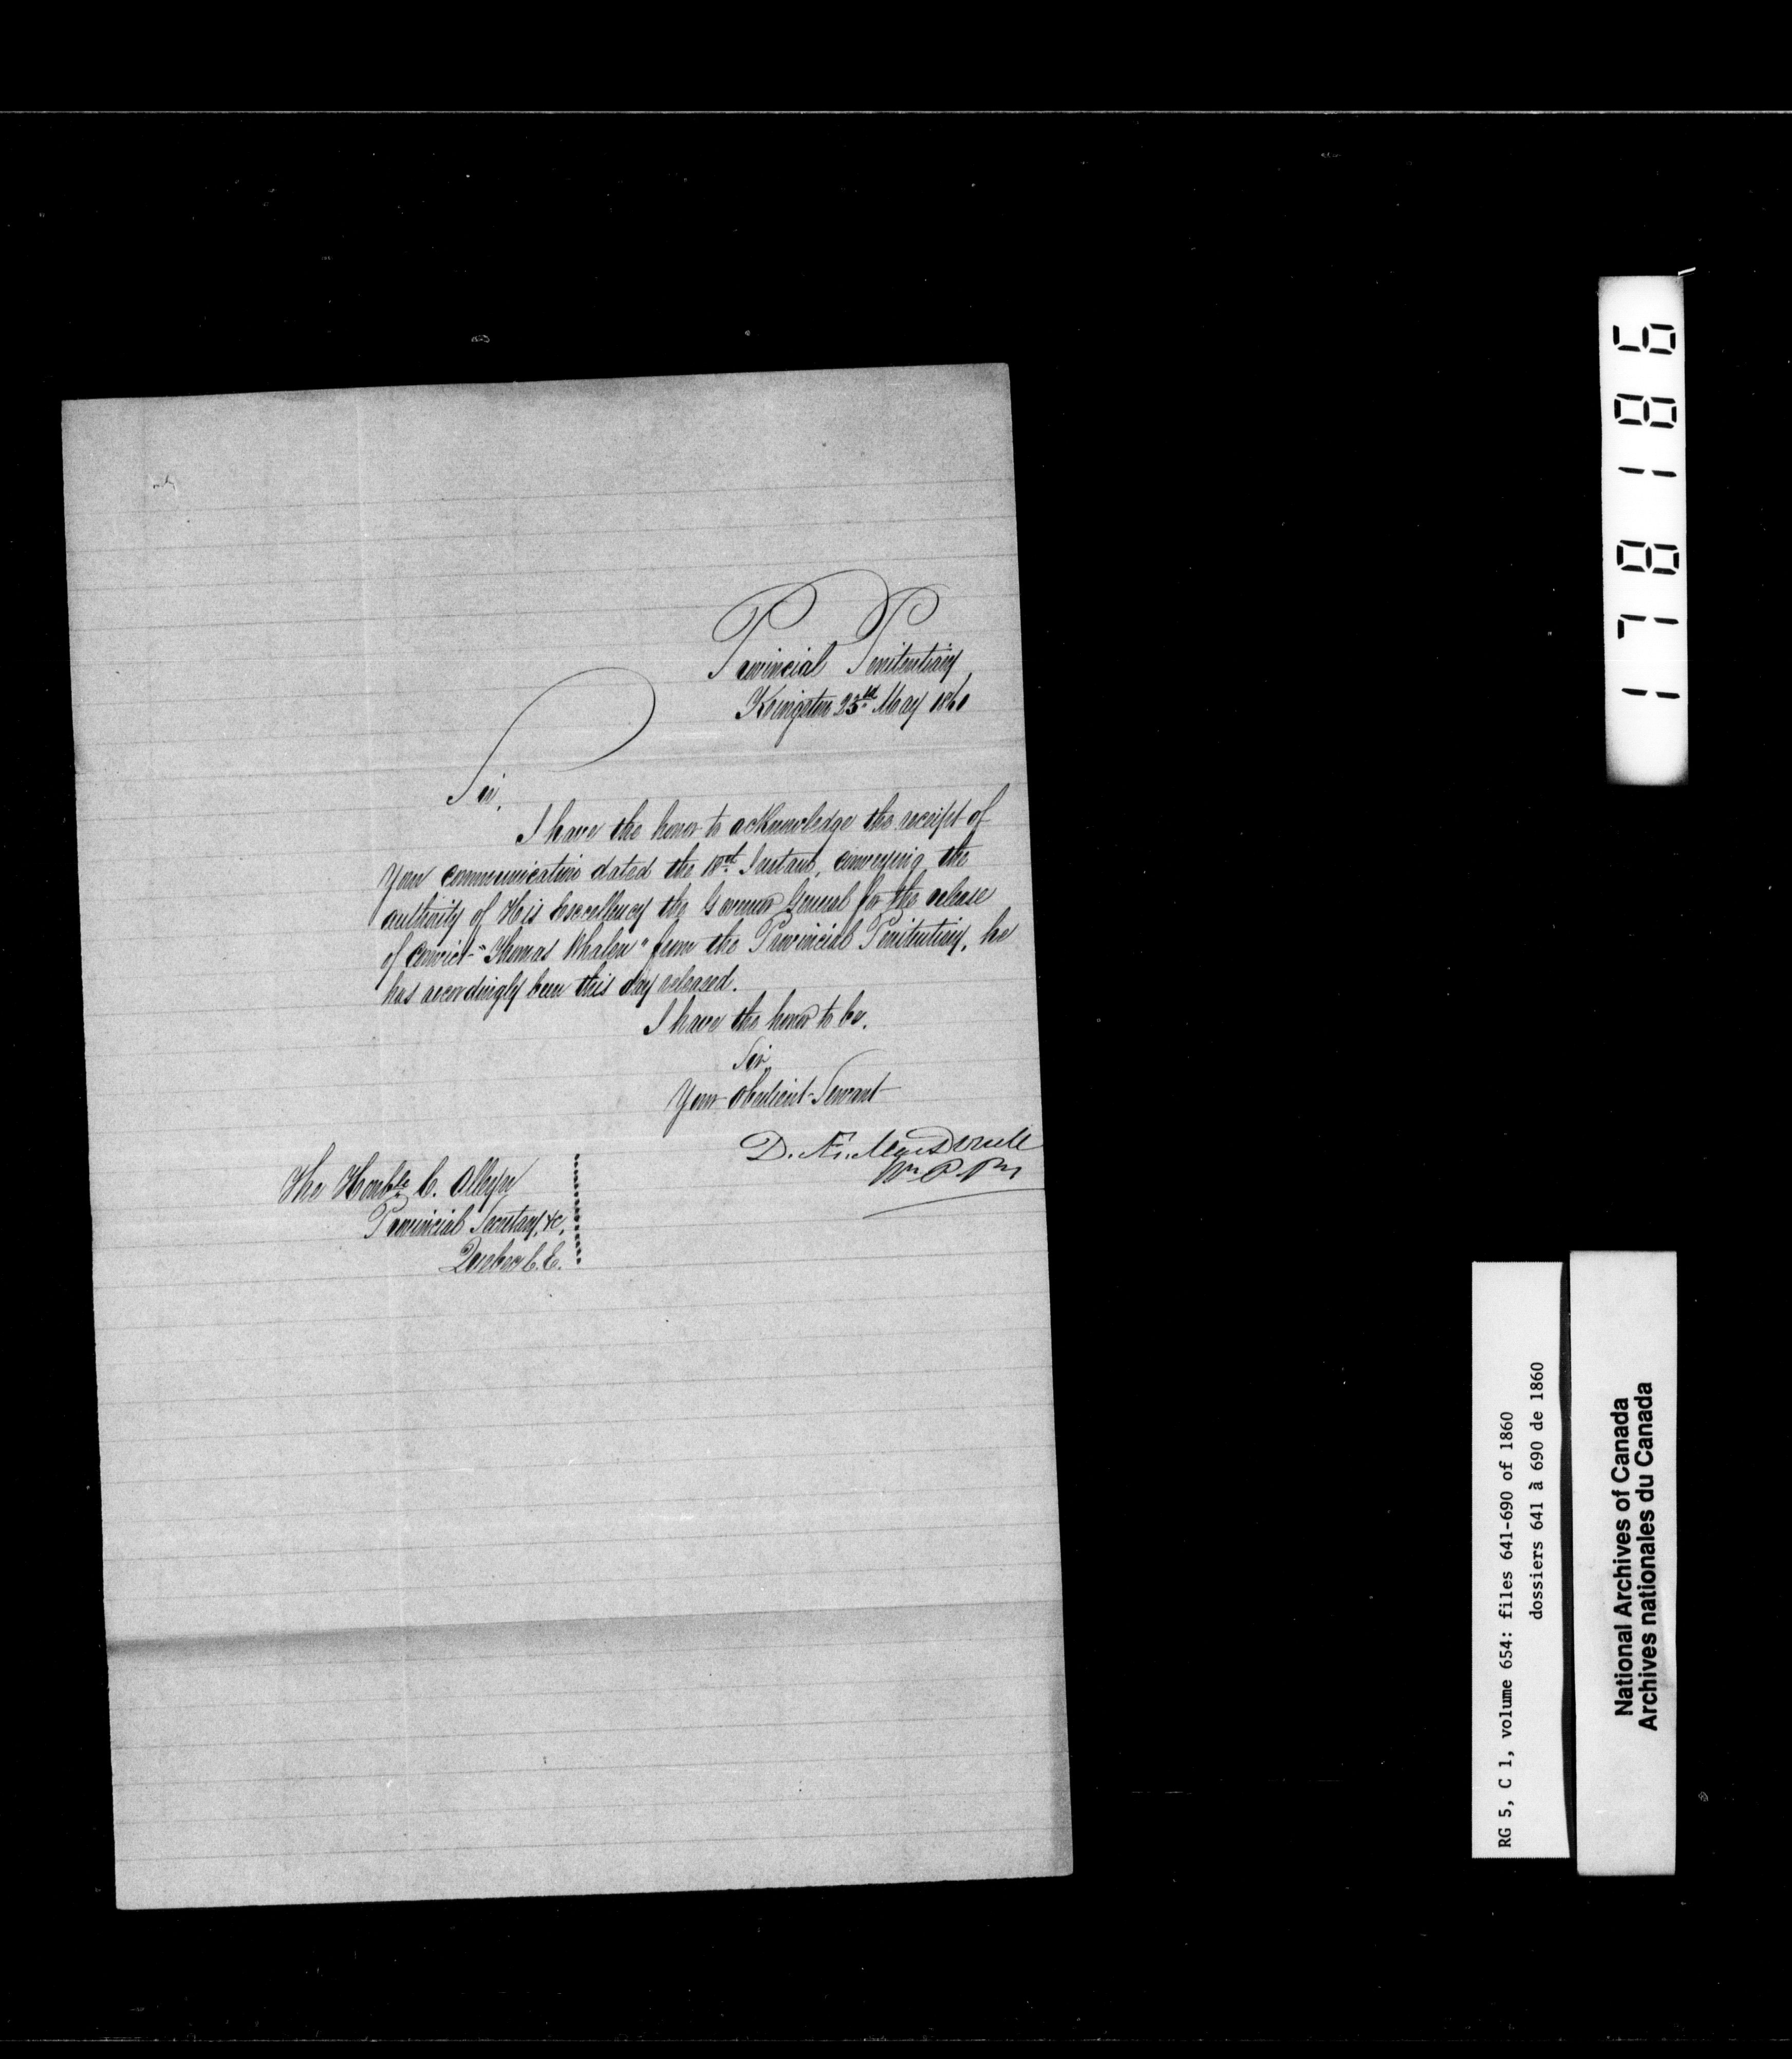 Provincial Penitentiary
Kingston 23rd May 1860
Sir,
I have the honor to acknowledge the receipt of
Your communication dated the Instant, conveying the
authority of His Excellency the Governor General for the release
of Convict "Thomas Whalen" from the Provincial Penitentiary, he
has accordingly been this day released.
I have the honor to be,
Sir,
Your Obedient Servant
D. Æ. MacDonell
Wn P. Py
The Honble C. Alleyn
Provincial Secretary, &c,
Quebec C.E.
178186
RG 5, C 1, volume 654: files 641-690 of 1860
dossiers 641 à 690 de 1860
National Archives of Canada
Archives nationales du Canada